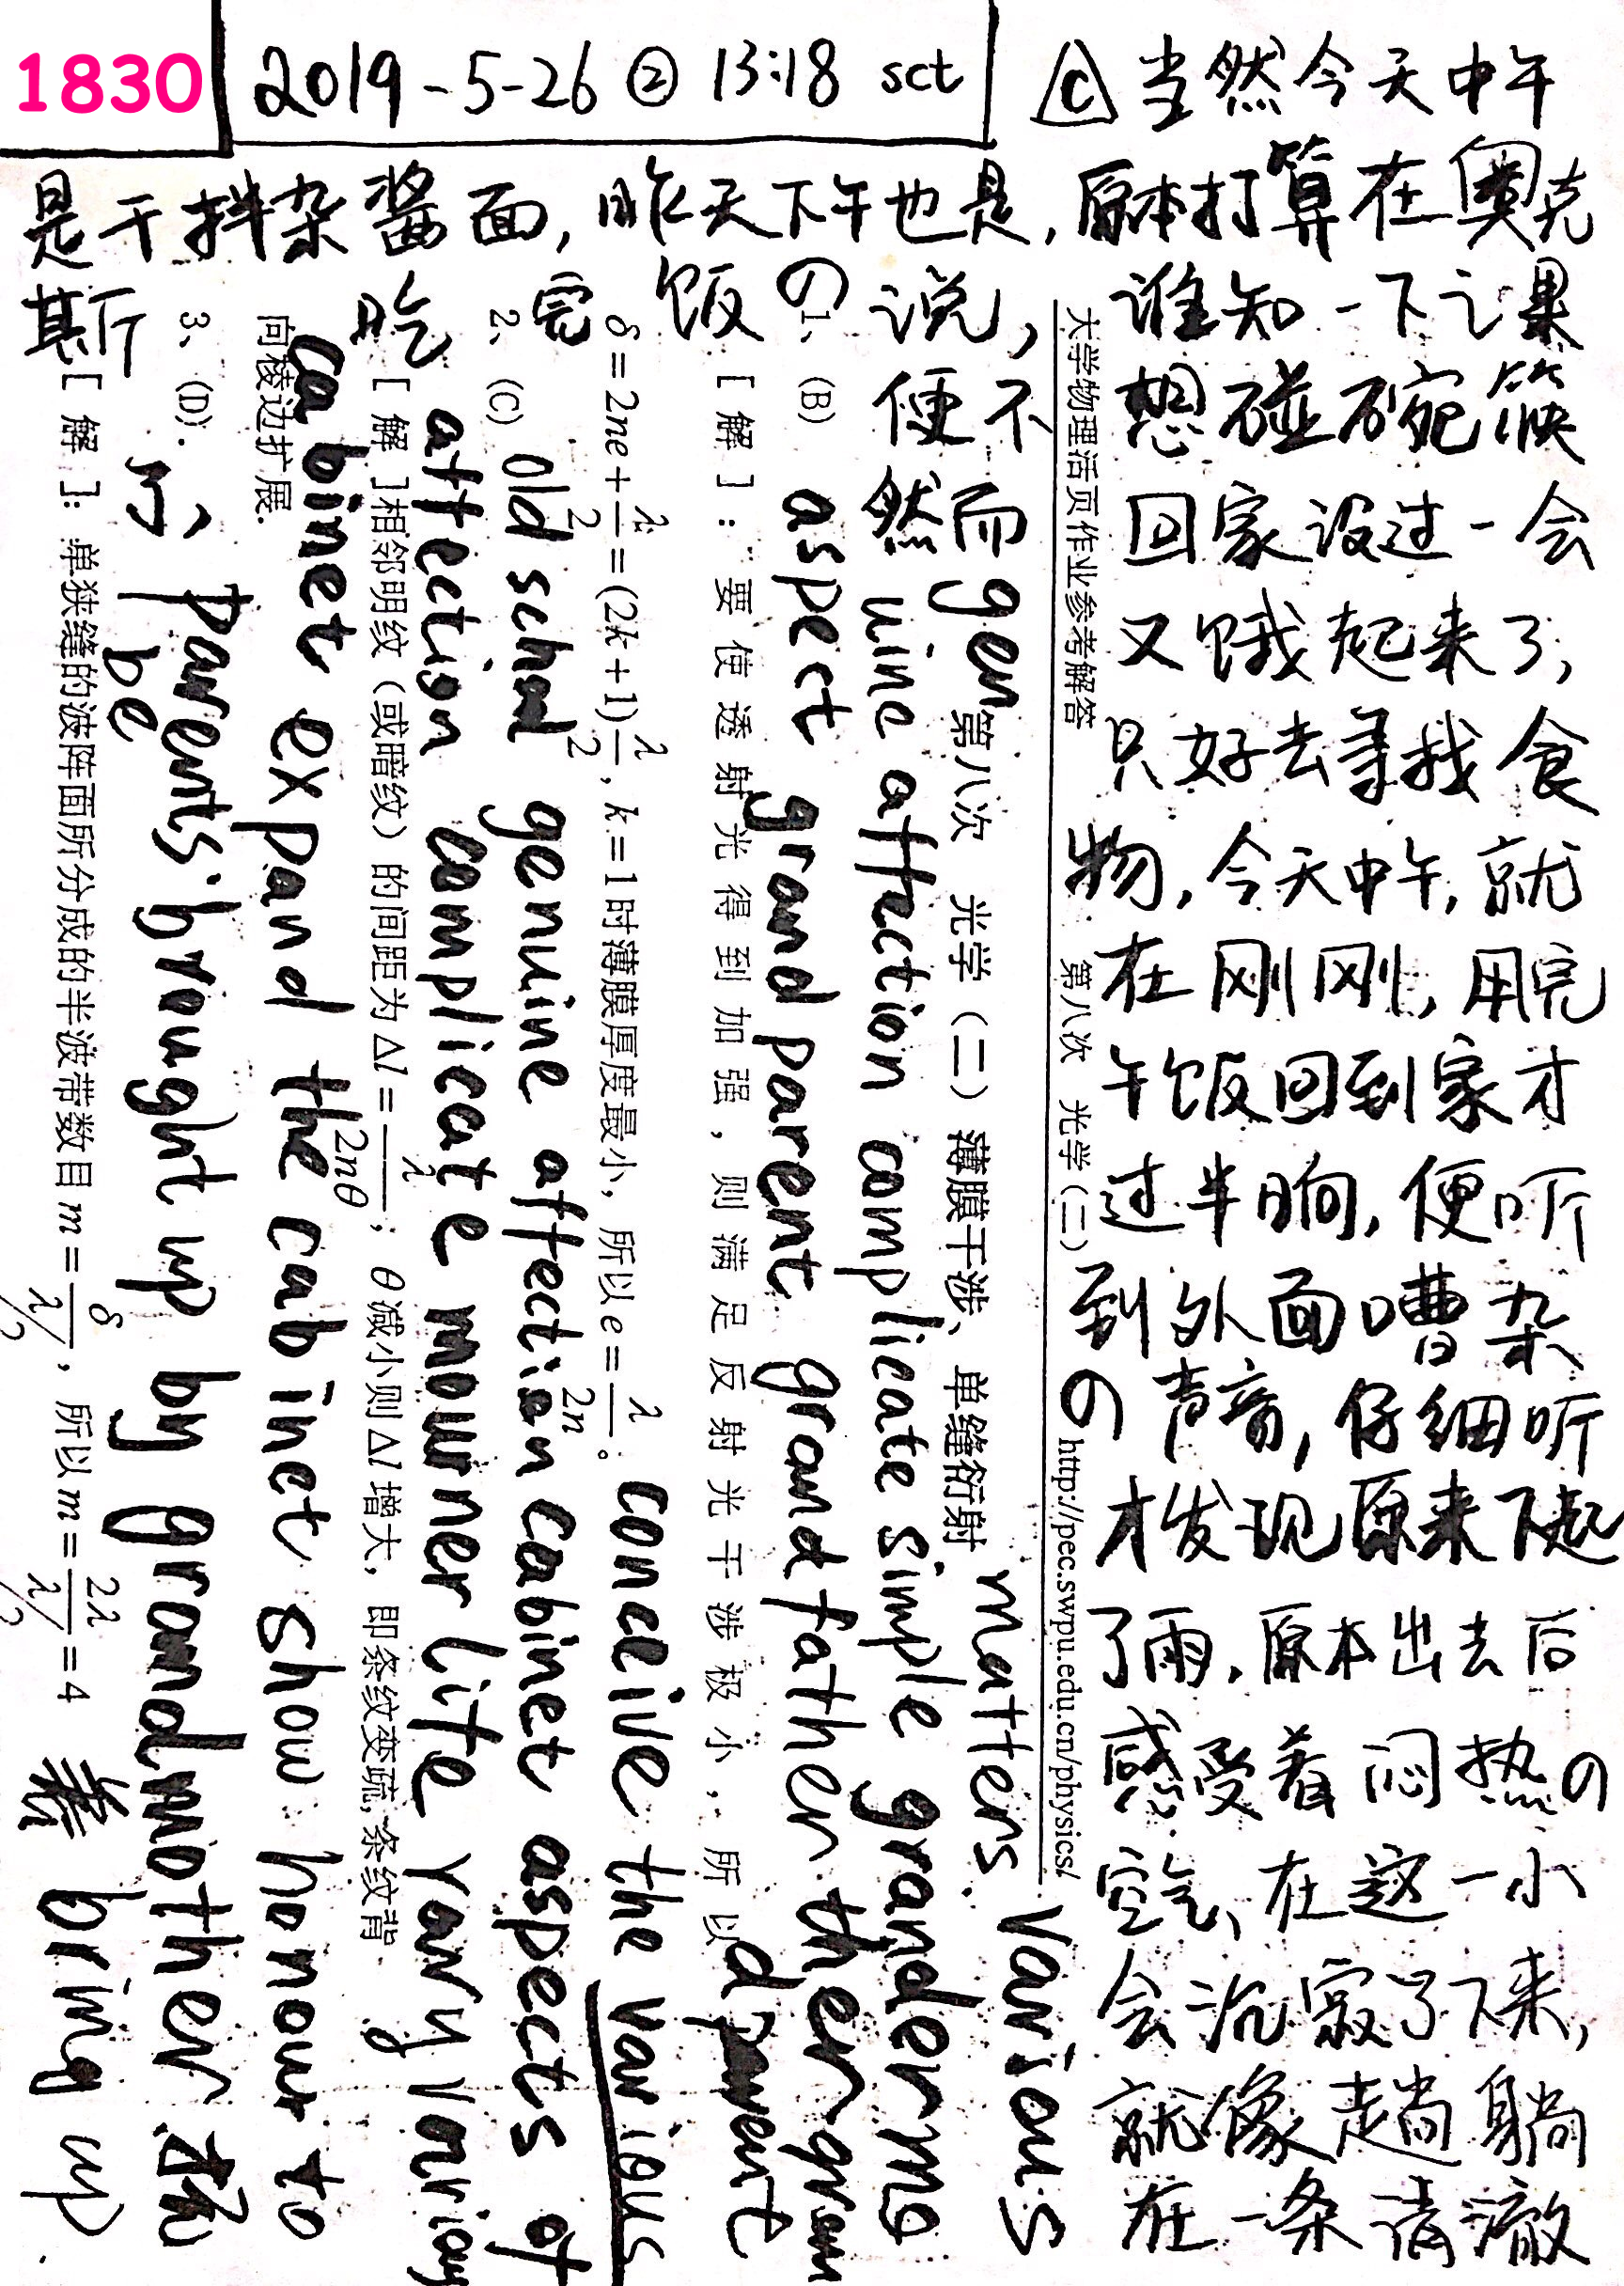 1830
2019-5-26 ② 13:18 sct
C 当然今天中午
是干拌杂酱面,昨天下午也是,原本打算在奥克
斯吃完饭の说,谁知一下之果
便不想碰碗筷
然而回家没过一会
又饿起来了,
只好去寻找食
物,今天中午,就
在刚刚,用完
午饭回到家才
过半晌,便听
到外面嘈杂
の声音,仔细听
才发现原来下起
了雨,原本出去后
感受着闷热の
空气,在这一小
会沉寂了下来,
就像走趟躺
在一条清澈
大学物理活页作业参考解答 第八次 光学(二) http://pec.swpu.edu.cn/physics/
第八次 光学(二)薄膜干涉、单缝衍射
1、(B)
[解]:要使透射光得到加强,则满足反射光干涉极小,所以
δ=2ne+λ/2=(2k+1)λ/2,k=1时薄膜厚度最小,所以e=λ/2n。
2、(C)
[解]相邻明纹(或暗纹)的间距为Δl=λ/2nθ;θ减小则Δl增大,即条纹变疏,条纹背
向棱边扩展.
3、(D).
[解]:单狭缝的波阵面所分成的半波带数目m=δ/(λ/2),所以m=2λ/(λ/2)=4
genuine matters various
affection complicate simple granderma
aspect grandparent grandfather
conceive the various
old school genuine affection cabinet aspects of
affection complicate mourner life vary variou
cabinet expand the cabinet show honour to
parents' brought up by grandmother
be
bring up